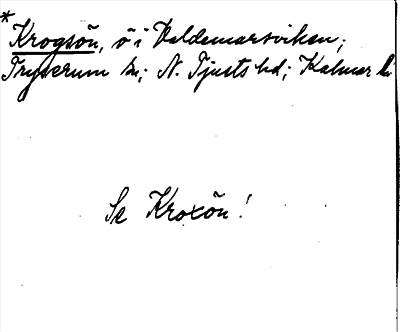 *
Krogsön, ö i Valdemarsviken;
Tryserum sn; N. Tjusts hd; Kalmar län
Se Kroxön!